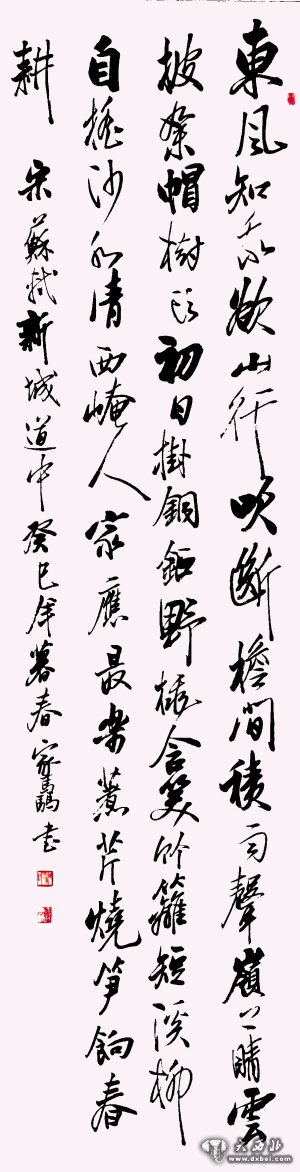 東風知我欲山行吹斷檐間積雨聲嶺上晴雲
披絮帽樹頭初日掛銅鉦野桃含笑竹籬短溪柳
自搖沙水清西崦人家應最樂煮芹燒筍餉春
耕 宋蘇軾新城道中癸巳年暮春家書
大西北
www.dxbei.com